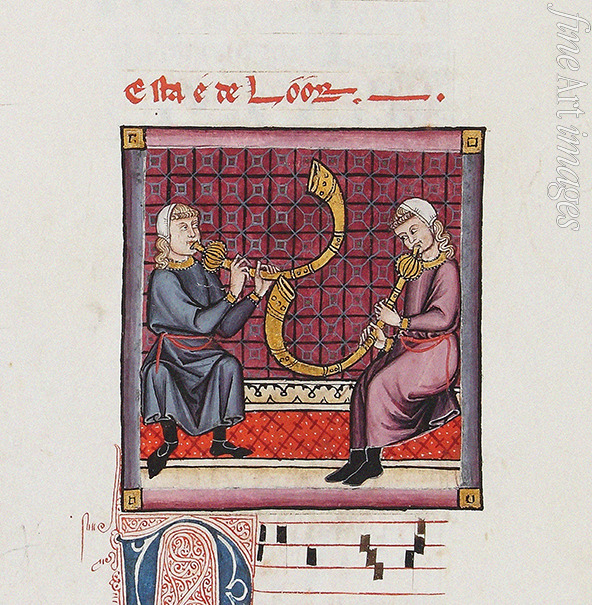 Esta é de Lóór.
fine Art images